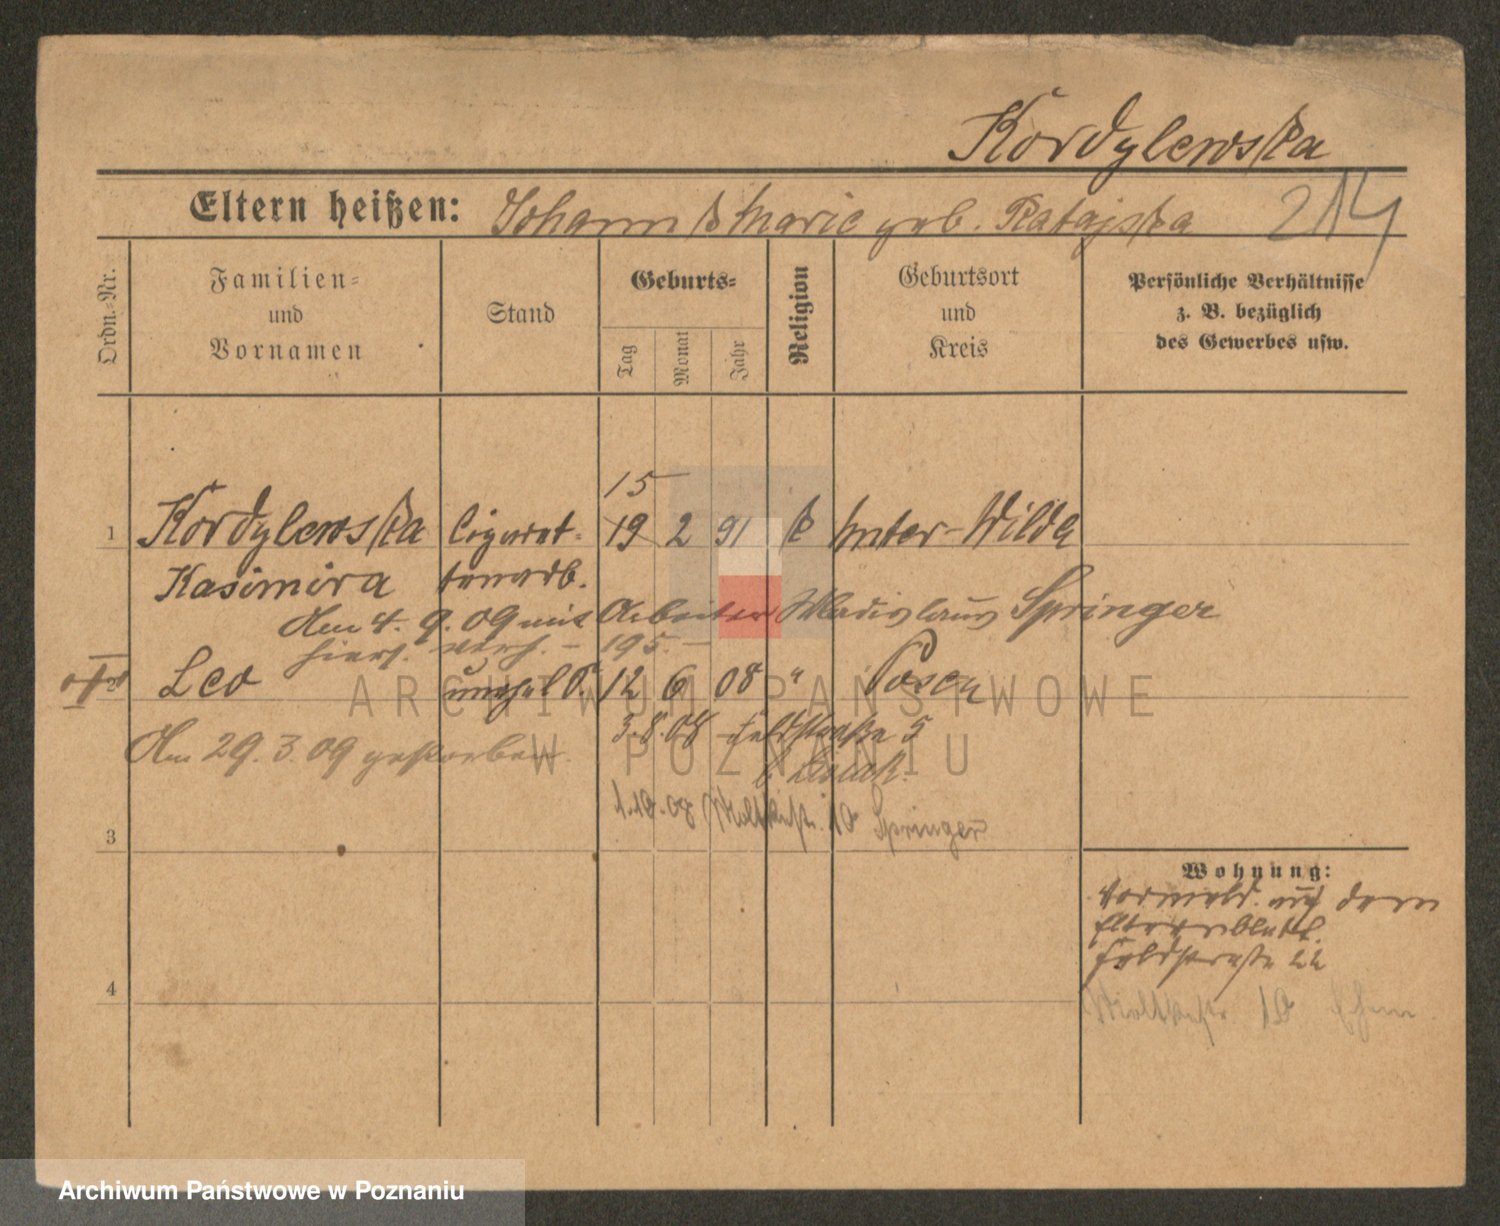 Kordylewska
Eltern heißen: Johann & Marie geb. Ratajska 214
Ordn.-Nr.
Familien-
und
Vornamen
Stand
Geburts-
Tag
Monat
Jahr
Religion
Geburtsort
und
Kreis
Persönliche Verhältnisse
z. B. bezüglich
des Gewerbes usw.
15
1 Kordylewska Cigaret- 19 2 91 k Unter-Wilda
Kasimira tenarb.
Am 4. 9. 09 mit Arbeiter Wladislaus Springer
hiers. verh. - 195. -
2 Leo unehel S. 12 6 08 " Posen
Am 29. 3. 09 gestorben.
3.8.08 Feldstraße 5
1.10.08 Moltkestr. 10 Springer
3
Wohnung:
vermeld. auf dem
Elternblatt.
Feldstraße 22
4
Moltkestr. 10
ARCHIWUM PAŃSTWOWE
W POZNANIU
Archiwum Państwowe w Poznaniu